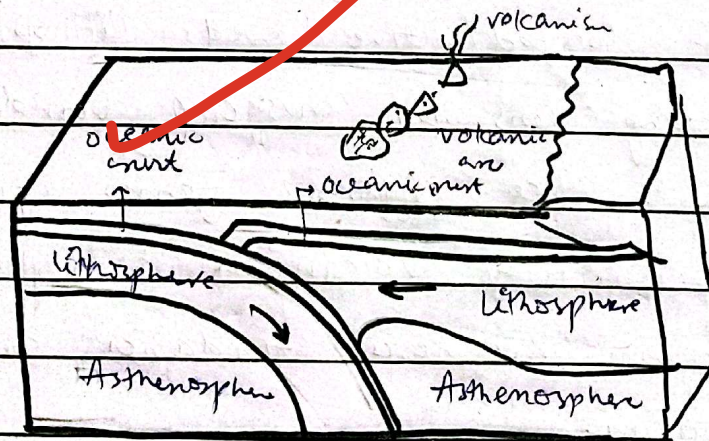 volcanism
oceanic
crust
volcanic
arc
oceanic crust
Lithosphere
Lithosphere
Asthenosphere
Asthenosphere